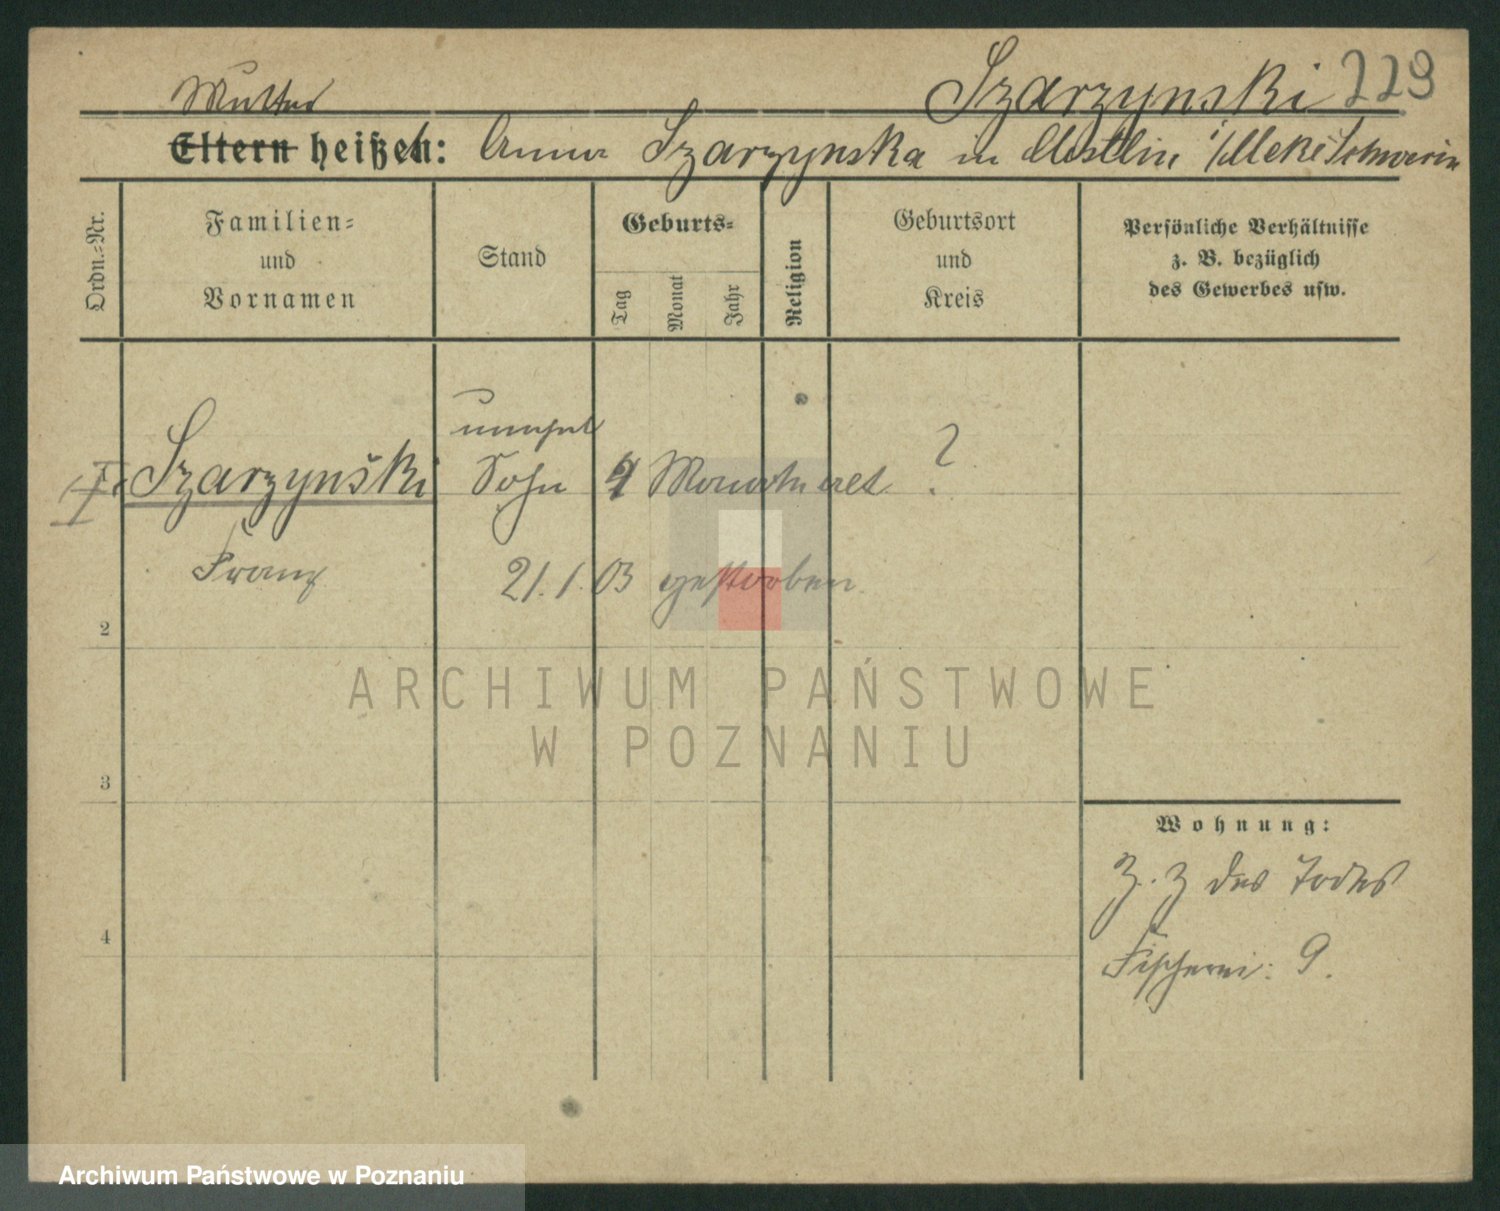 Szarzynski 229
Mutter
Eltern heißen: Anna Szarzynska in Mestlin i/Meck. Schwerin
Ordn.=Nr.
Familien=
und
Vornamen
Stand
Geburts=
Tag
Monat
Jahr
Religion
Geburtsort
und
Kreis
Persönliche Verhältnisse
z. B. bezüglich
des Gewerbes usw.
unehel
Szarzynski Sohn 4 Monate alt ?
Franz 21.1.03 gestorben
2
3
4
Wohnung:
Z. Z des Todes
Fischerei: 9.
ARCHIWUM PAŃSTWOWE
W POZNANIU
Archiwum Państwowe w Poznaniu